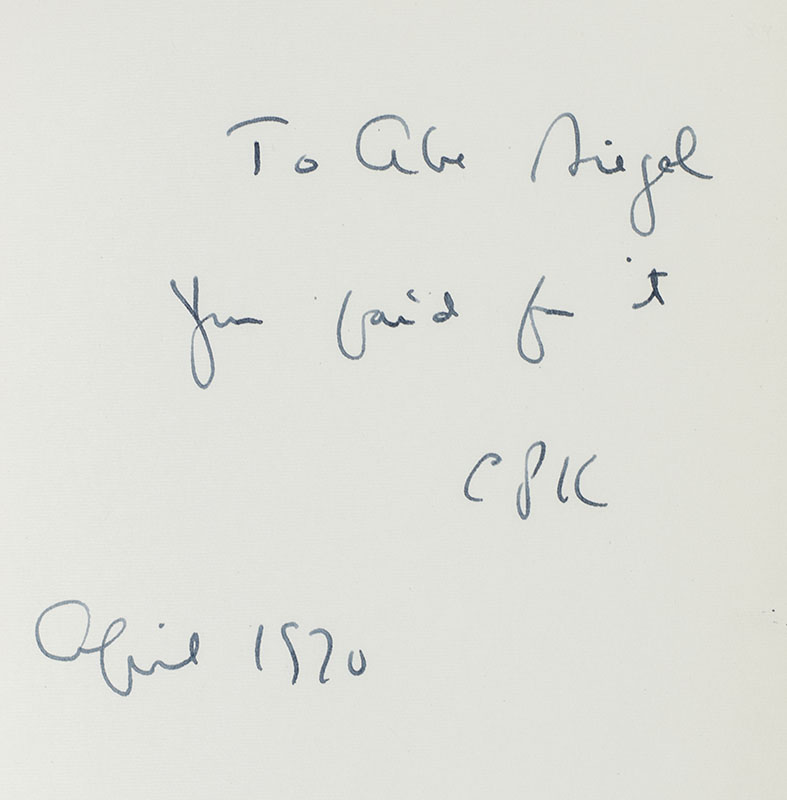 To Abe Siegel
You paid for it
CPK
April 1970